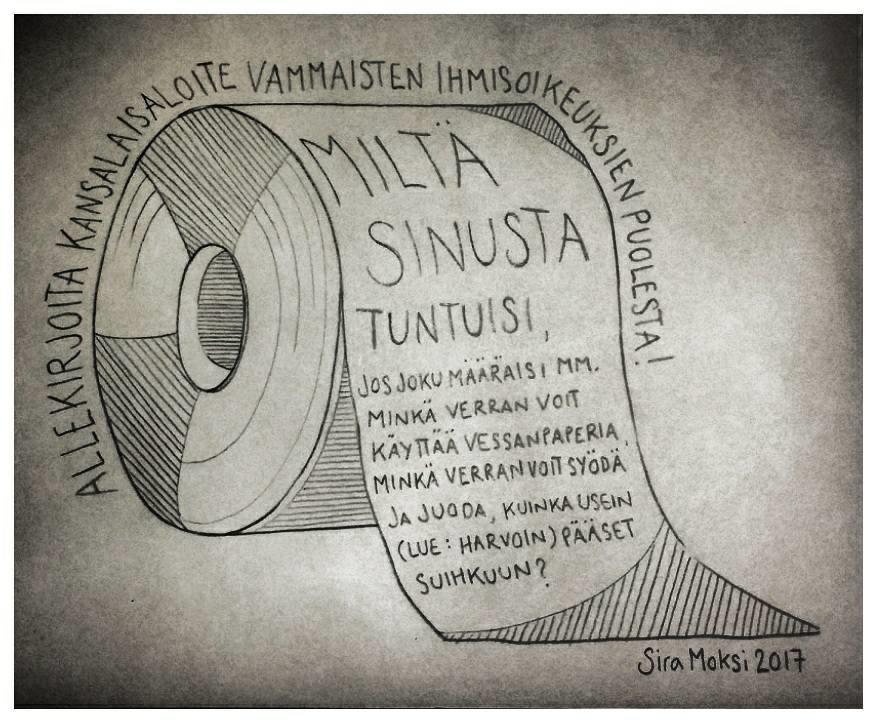 ALLEKIRJOITA KANSALAISALOITE VAMMAISTEN IHMISOIKEUKSIEN PUOLESTA!
MILTÄ
SINUSTA
TUNTUISI,
JOS JOKU MÄÄRÄISI MM.
MINKÄ VERRAN VOIT
KÄYTTÄÄ VESSANPAPERIA,
MINKÄ VERRAN VOIT SYÖDÄ
JA JUODA, KUINKA USEIN
(LUE: HARVOIN) PÄÄSET
SUIHKUUN?
Sira Moksi 2017